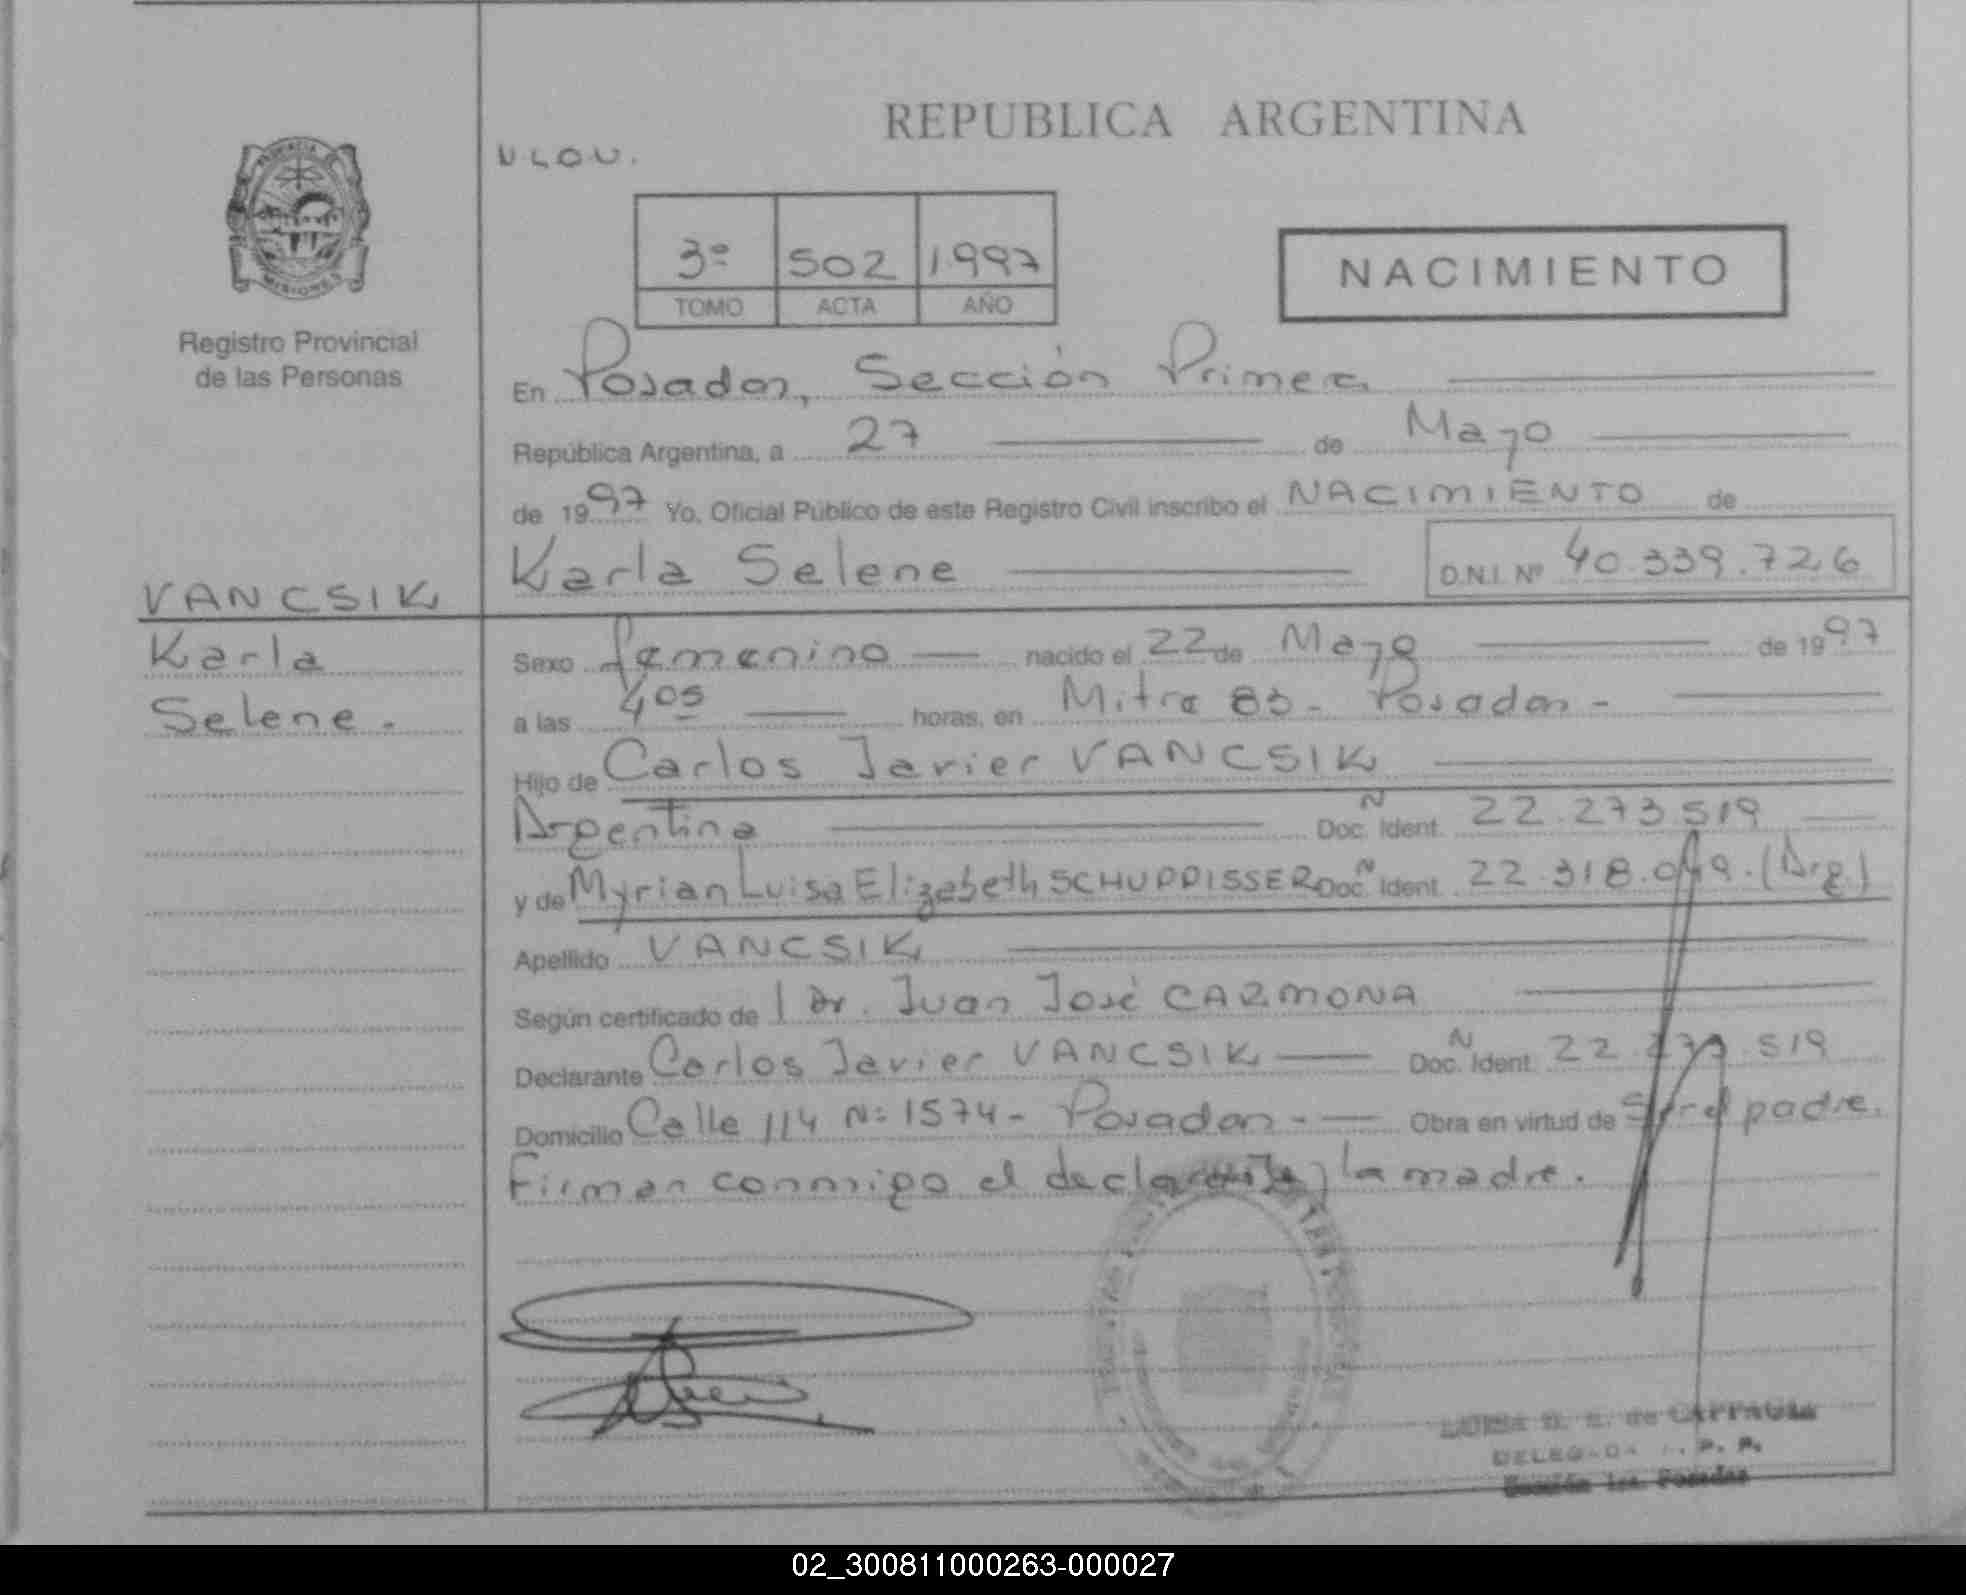 REPUBLICA ARGENTINA
PROVINCIA DE
MISIONES
Registro Provincial
de las Personas
3º 502 1997
TOMO ACTA AÑO
NACIMIENTO
En Posadas, Sección Primera
República Argentina, a 27 de Mayo
de 1997 Yo, Oficial Público de este Registro Civil inscribo el NACIMIENTO de
Karla Selene D.N.I. Nº 40.339.726
VANCSIK
Karla
Selene.
Sexo femenino nacido el 22 de Mayo de 1997
a las 4 05 horas, en Mitre 83 - Posadas -
Hijo de Carlos Javier VANCSIK
Argentina Doc. N Ident. 22.273.519
y de Myrian Luisa Elizabeth SCHUPPISSER Doc. N Ident. 22.318.049. (Arg.)
Apellido VANCSIK
Según certificado de l Dr. Juan José CARMONA
Declarante Carlos Javier VANCSIK Doc. N Ident. 22.273.519
Domicilio Calle 114 Nº 1574 - Posadas - Obra en virtud de Ser el padre.
Firman conmigo el declarante y la madre.
DELEGADA R. P. P.
Sección 1ra. Posadas
02_300811000263-000027